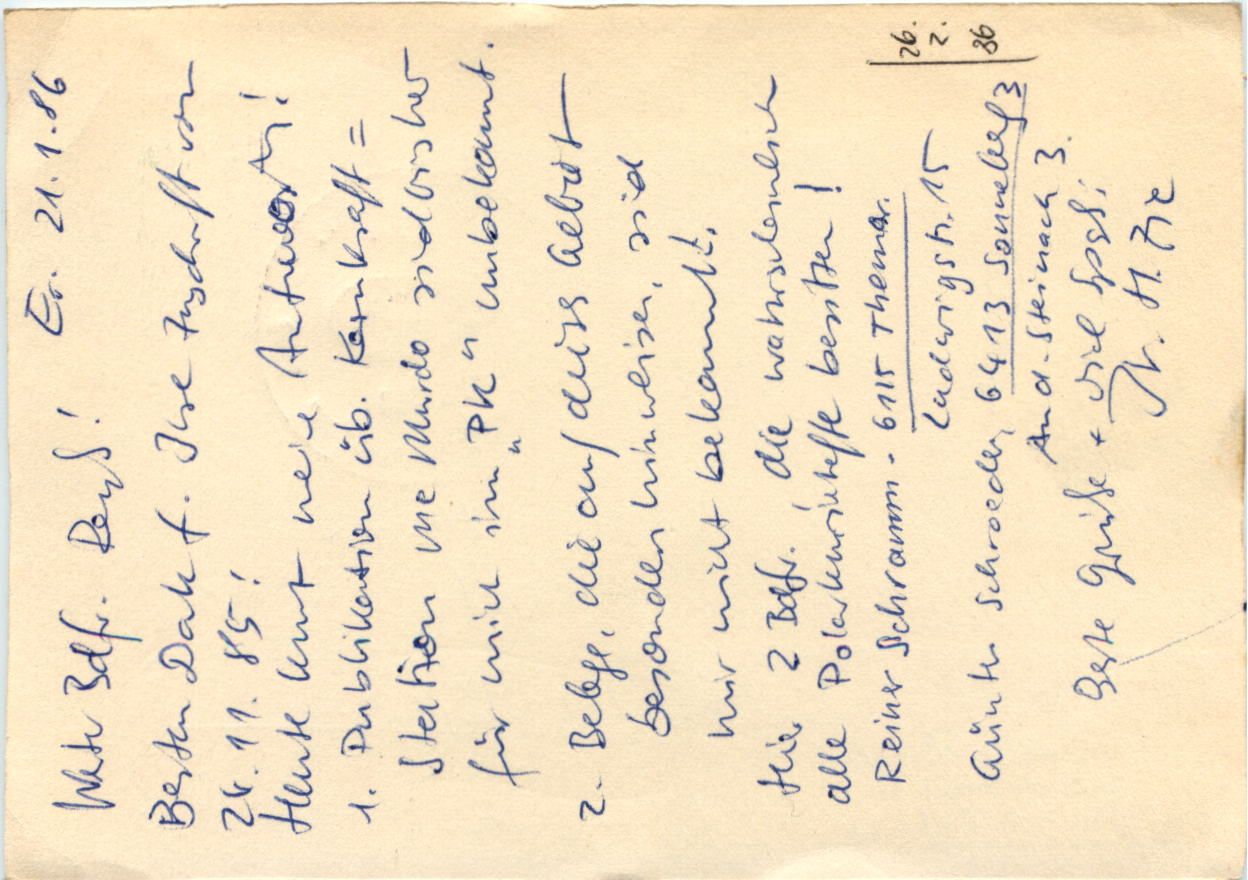 Er. 21.1.86
Werter Bdfr.
Besten Dank f. Ihre Zuschrift von
24.11.85!
Heute kurz meine Antwort!
1. Publikation üb. Kernkraft=
Station Mc Murdo sind bisher
für mich im „PK“ unbekannt.
2. Belege, die auf dieses Gebiet
besonders hinweisen, sind
mir nicht bekannt.
Hier 2 Bdfr. die wahrscheinlich
alle Polarkurierhefte besitzen!
Reiner Schramm - 6115 Themar.
Ludwigstr. 15
Günter Schroeder, 6413 Sonneberg 3
An d. Steinach 3.
Beste Grüße + viel
26.
2.
86